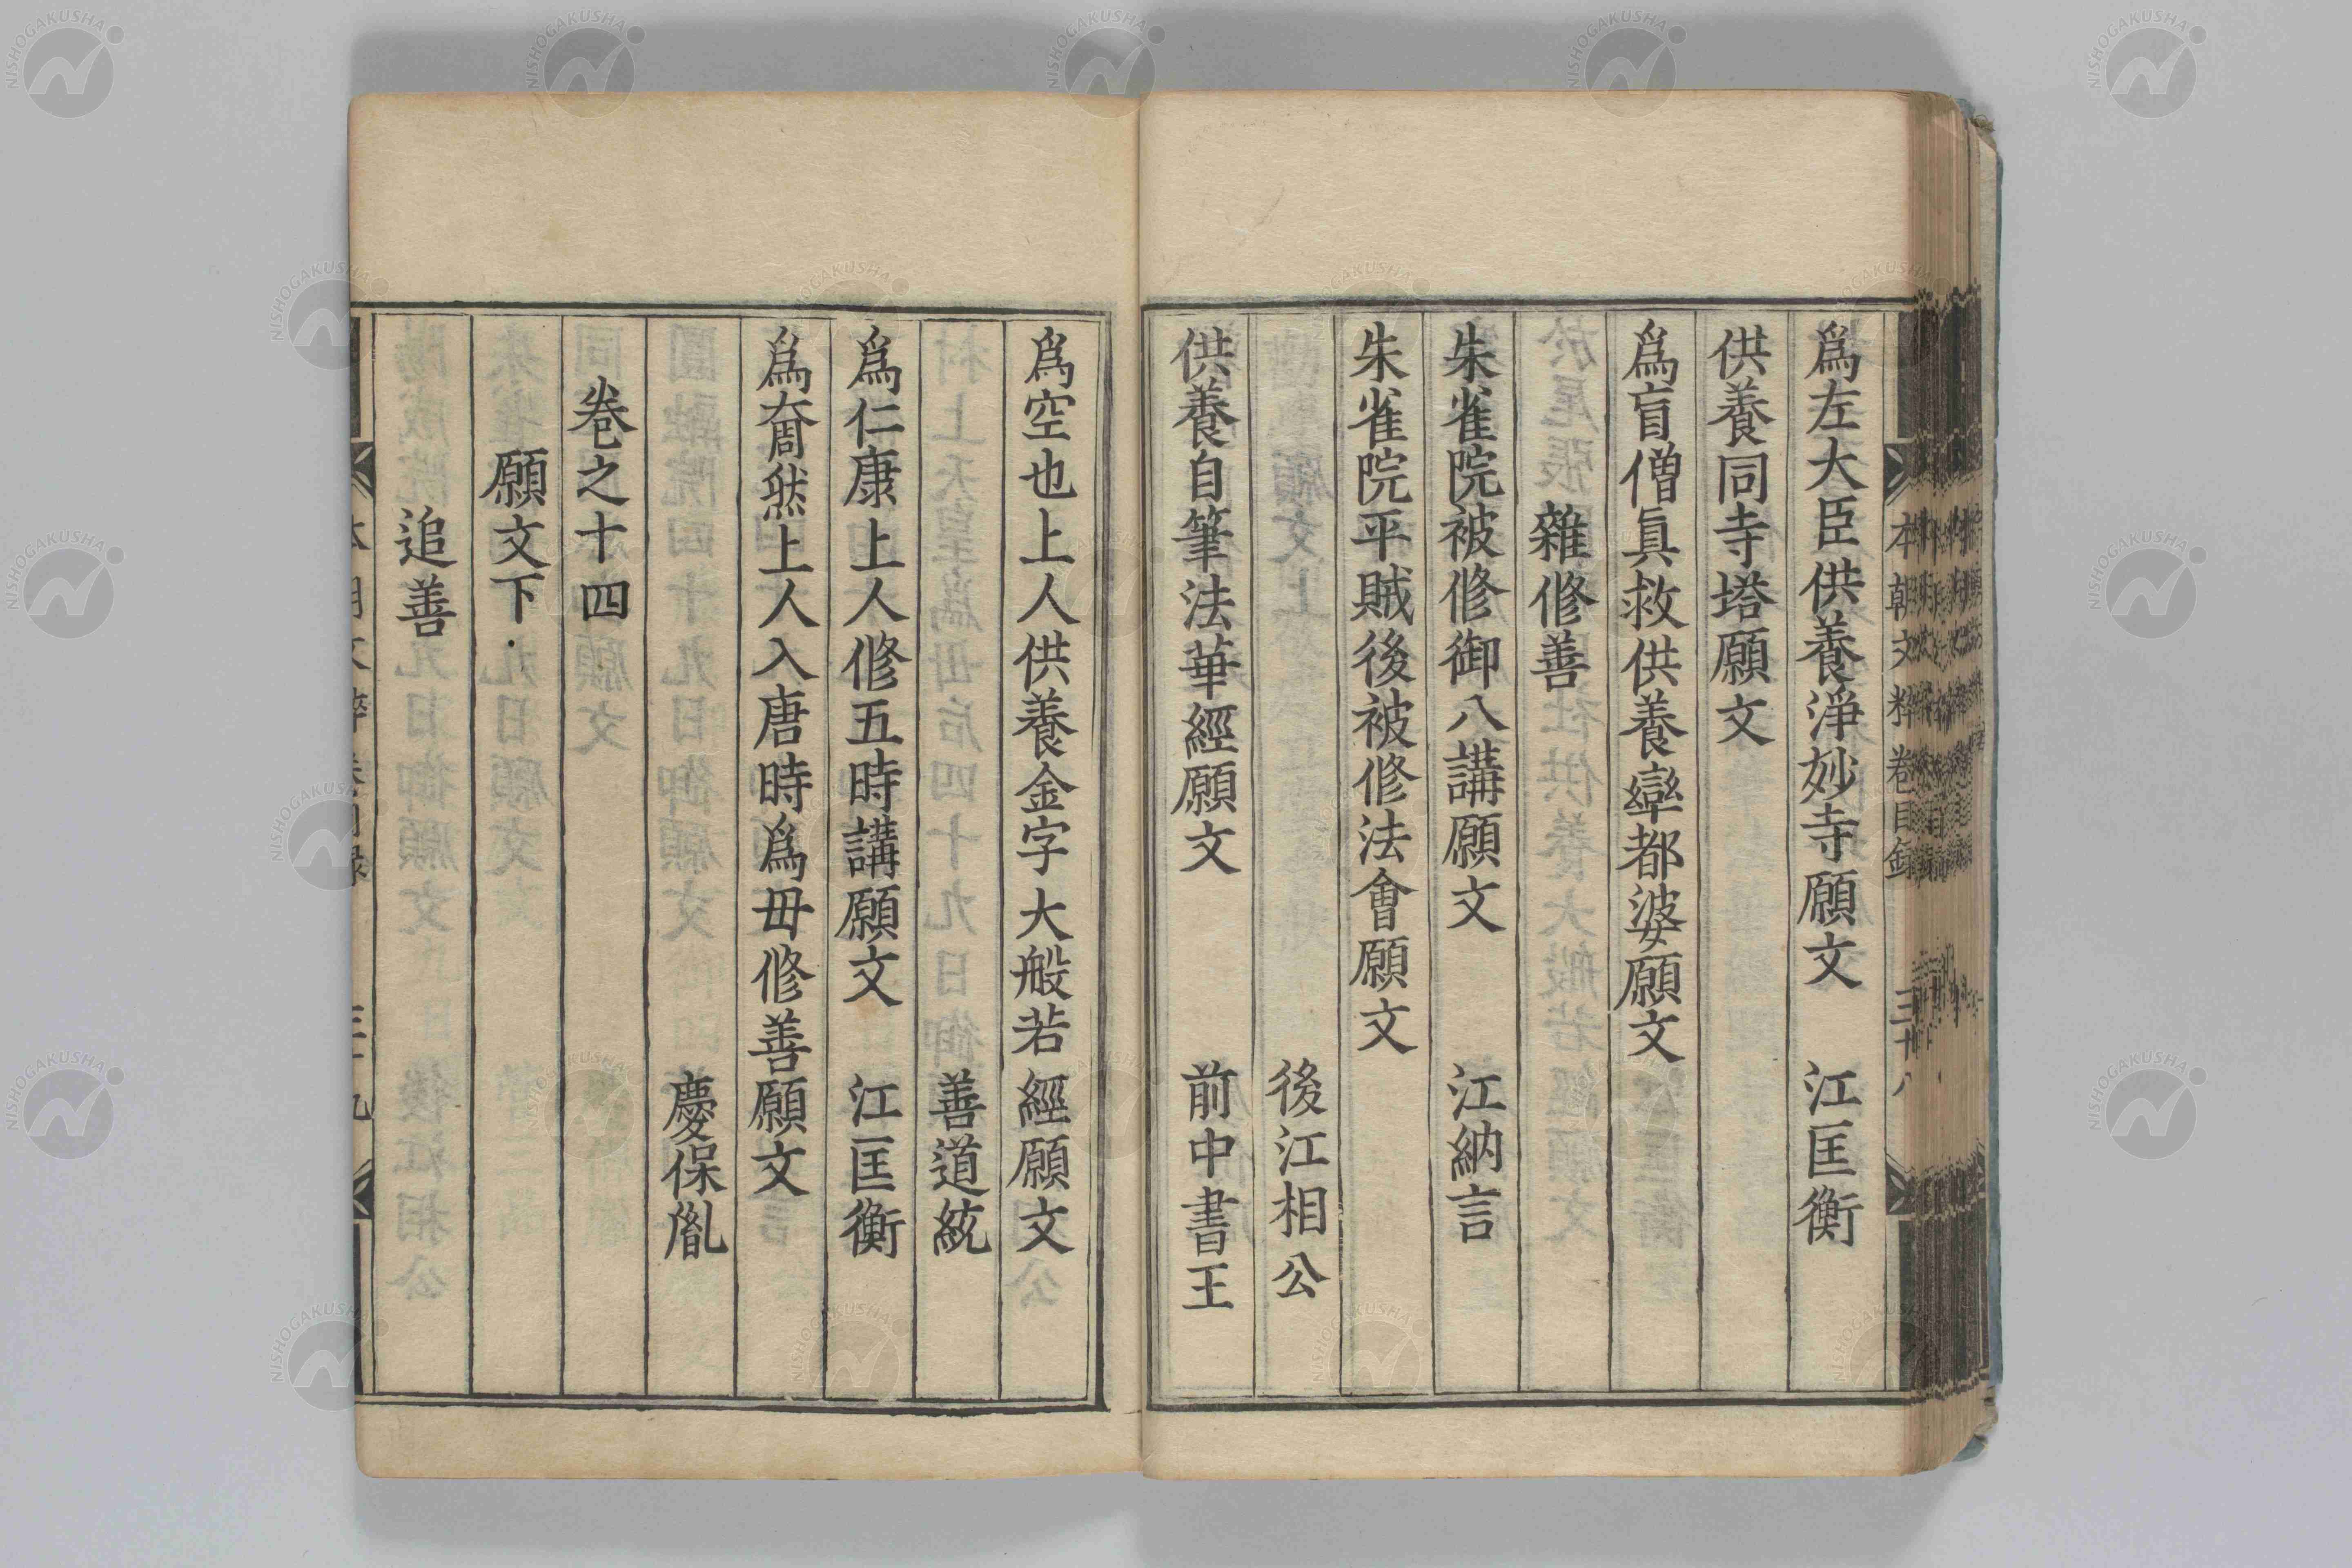 爲左大臣供養淨妙寺願文　江匡衡
供養同寺塔願文
爲盲僧眞救供養率都婆願文
雜修善
朱雀院被修御八講願文　江納言
朱雀院平賊後被修法會願文
後江相公
供養自筆法華經願文　前中書王
爲空也上人供養金字大般若經願文
善道統
爲仁康上人修五時講願文　江匡衡
爲奝然上人入唐時爲毋修善願文
慶保胤
卷之十四
願文下
追善
本朝文粹卷目錄
NISHOGAKUSHA